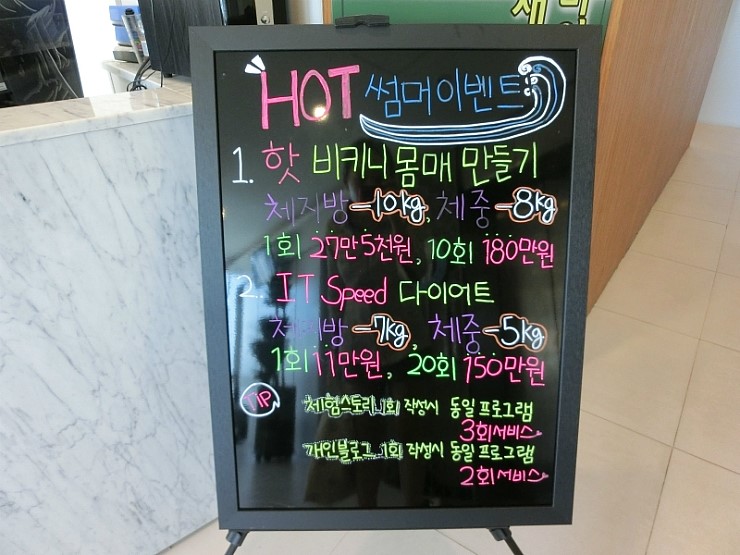 HOT 썸머이벤트
1. 핫 비키니 몸매 만들기
체지방 -10kg, 체중 -8kg
1회 27만5천원, 10회 180만원
2. IT Speed 다이어트
체지방 -7kg, 체중 -5kg
1회 11만원, 20회 150만원
TIP 체험스토리 1회 작성시 동일프로그램
3회서비스
개인블로그 1회 작성시 동일프로그램
2회서비스